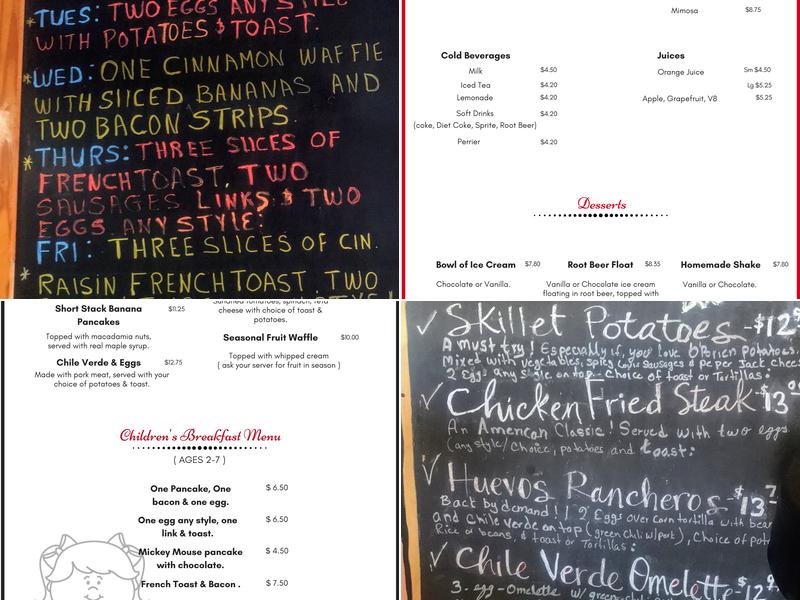 *TUES: TWO EGGS ANY STYLE
WITH POTATOES & TOAST.
*WED: ONE CINNAMON WAFFLE
WITH SLICED BANANAS AND
TWO BACON STRIPS.
*THURS: THREE SLICES OF
FRENCH TOAST, TWO
SAUSAGES LINKS & TWO
EGGS ANY STYLE:
FRI: THREE SLICES OF CIN.
* RAISIN FRENCH TOAST, TWO
Mimosa $8.75
Cold Beverages
Milk $4.50
Iced Tea $4.20
Lemonade $4.20
Soft Drinks $4.20
(coke, Diet Coke, Sprite, Root Beer)
Perrier $4.20
Juices
Orange Juice Sm $4.50
Lg $5.25
Apple, Grapefruit, V8 $5.25
Desserts
Bowl of Ice Cream $7.80
Chocolate or Vanilla.
Root Beer Float $8.35
Vanilla or Chocolate ice cream
floating in root beer, topped with
Homemade Shake $7.80
Vanilla or Chocolate.
Short Stack Banana $11.25
Pancakes
Topped with macadamia nuts,
served with real maple syrup.
Chile Verde & Eggs $12.75
Made with pork meat, served with your
choice of potatoes & toast.
Sundried tomatoes, spinach, feta
cheese with choice of toast &
potatoes.
Seasonal Fruit Waffle $10.00
Topped with whipped cream
( ask your server for fruit in season )
Children's Breakfast Menu
( AGES 2-7 )
One Pancake, One $ 6.50
bacon & one egg.
One egg any style, one $ 6.50
link & toast.
Mickey Mouse pancake $ 4.50
with chocolate.
French Toast & Bacon . $ 7.50
✓ Skillet Potatoes -$12
A must try! Especially if, you love O'Brien potatoes.
Mixed with vegetables, spicy Louis Sausages & peper Jack chees
2 Eggs any style on top - choice of toast or Tortillas:
✓ Chicken Fried Steak -13
An American Classic! Served with two eggs
(any style/choice, potatoes and toast:
✓ Huevos Rancheros -$13.7
Back by demand! 2 Eggs over corn tortilla with bean
and chile verde on top (green chili w/pork), choice of pot
Rice or beans, & toast or Tortillas:
✓ Chile Verde Omelette -$12
3-egg-Omelette w/green-chili